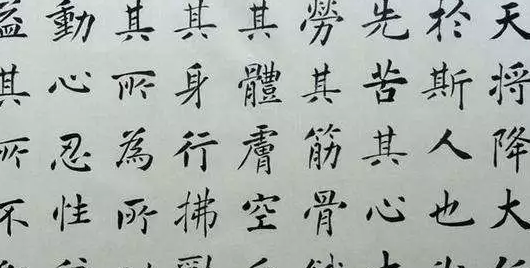 天將降大任
於斯人也
先苦其心志
勞其筋骨餓
其體膚空乏
其身行拂亂
其所為所以
動心忍性
益其所不